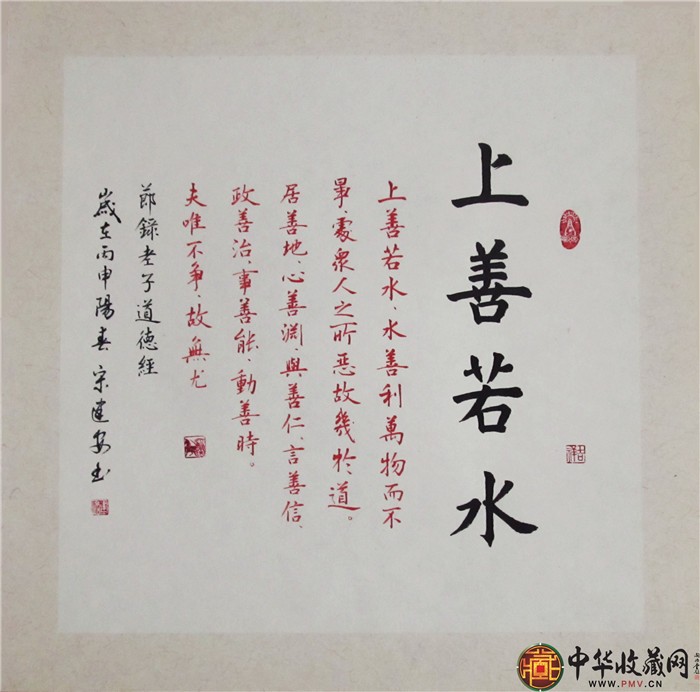 上善若水
上善若水、水善利萬物而不
爭、處衆人之所惡故幾於道。
居善地、心善淵、與善仁、言善信、
政善治、事善能、動善時。
夫唯不争、故無尤
節録老子道德經
歲在丙申陽春 宋建安书
中华收藏网
WWW.PMV.CN